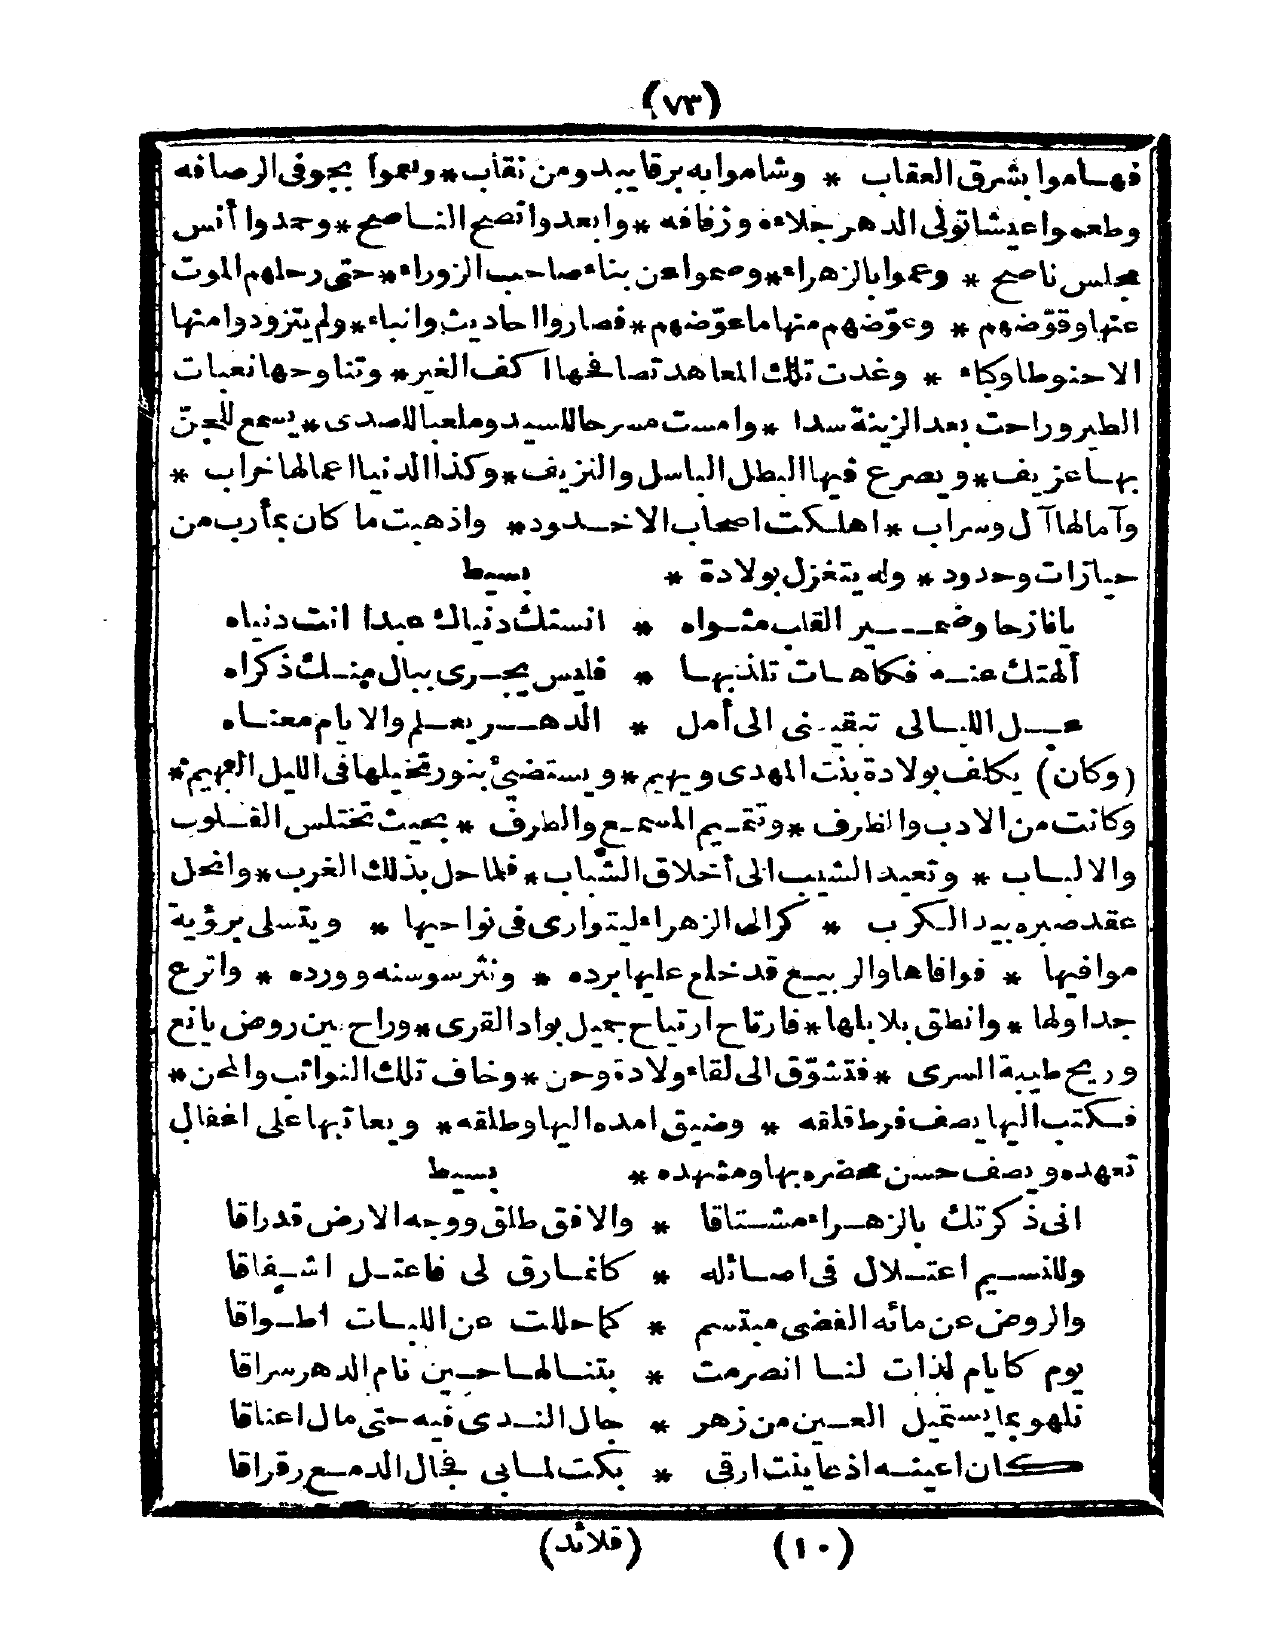 (٧٣)
فهاموا بشرق العقاب * وشاموا به برقا يبدو من نقاب * ونعموا بجوفى الرصافه
وطعموا عيشا تولى الدهر جلاءه وزفافه * وابعدوا نصح الناصح * وحمدوا أنس
مجلس ناصح * وعموا بالزهراء * وصموا عن بناء صاحب الزوراء * حتى رحلهم الموت
عنها وقوّضهم * وعوّضهم منها ما عوّضهم * فصاروا احاديث وانباء * ولم يتزودوا منها
الا حنوطا وكاء * وغدت تلك المعاهد تصافحها اكف الغير * وتناوحها نعبات
الطير وراحت بعد الزينة سدا * وامست مسرحا للسيد وملعبا للصدى * يسمع للجنّ
بها عزيف * ويصرع فيها البطل الباسل والنزيف * وكذا الدنيا اعمالها خراب *
وآمالها آل وسراب * اهلكت اصحاب الاخدود * واذهبت ما كان بمأرب من
حيازات وحدود * وله يتغزل بولادة * بسيط
يا نازحا وضمير القلب مثواه * انستك دنياك عبدا انت دنياه
ألهتك عنه فكاهات تلذبها * فليس يجرى ببال منك ذكراه
عل الليالى تبقينى الى أمل * الدهر يعلم والايام معناه
(وكان) يكلف بولادة بنت المهدى ويهيم * ويستضئ بنور تخيلها فى الليل البهيم *
وكانت من الادب والظرف * وتتميم المسمع والطرف * بحيث تختلس القلوب
والالباب * وتعيد الشيب الى أخلاق الشّباب * فلما حل بذلك الغرب * وانحل
عقد صبره بيد الكرب * كر الى الزهراء ليتوارى فى نواحيها * ويتسلى برؤية
موافيها * فوافاها والربيع قد خلع عليها برده * ونثر سوسنه وورده * واترع
جداولها * وانطق بلابلها * فارتاح ارتياح جميل بواد القرى * وراح بين روض يانع
وريح طيبة السرى * فتشوّق الى لقاء ولادة وحن * وخاف تلك النوائب والمحن *
فكتب اليها يصف فرط قلقه * وضيق امده اليها وطلقه * ويعاتبها على اغفال
تعهده ويصف حسن محضره بها ومشهده * بسيط
انى ذكرتك بالزهراء مشتاقا * والافق طلق ووجه الارض قد راقا
وللنسيم اعتلال فى اصائله * كانما رق لى فاعتل اشفاقا
والروض عن مائه الفضى مبتسم * كما حللت عن اللبات اطواقا
يوم كايام لذات لنا انصرمت * بتنا لها حين نام الدهر سراقا
نلهو بما يستميل العين من زهر * جال الندى فيه حتى مال اعناقا
كان اعينه اذ عاينت ارقى * بكت لما بى فجال الدمع رقراقا
(١٠) (قلائد)